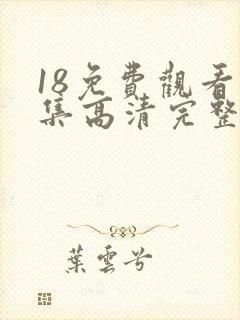 18免費觀看
集高清完整
葉雲兮